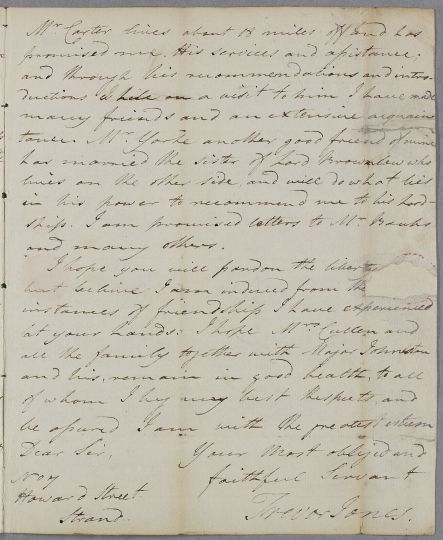 Mr. Carter lives about 18 miles off and has
promised me His services and assistance;
and through his recommendations and intro-
ductions while on a visit to him I have made
many friends and an extensive acquain
tance. Mr. Yorke another good friend of mine
has married the sister of Lord Brownlow who
lives on the other side, and will do what lies
in his power to recommend me to his Lord-
ship. I am promised letters to Mr. Banks
and many others.
I hope you will pardon the liberty
but believe I am induced from the
instances of friendship I have experienced
at your hands: I hope Mrs. Cullen and
all the family together with Major Johnston
and his, remain in good health, to all
of whom I beg my best Respects and
be assured I am with the greatest esteem
Dear Sir, Your Most obliged and
No 7 faithful Servant
Howard Street
Strand. Trevor Jones.